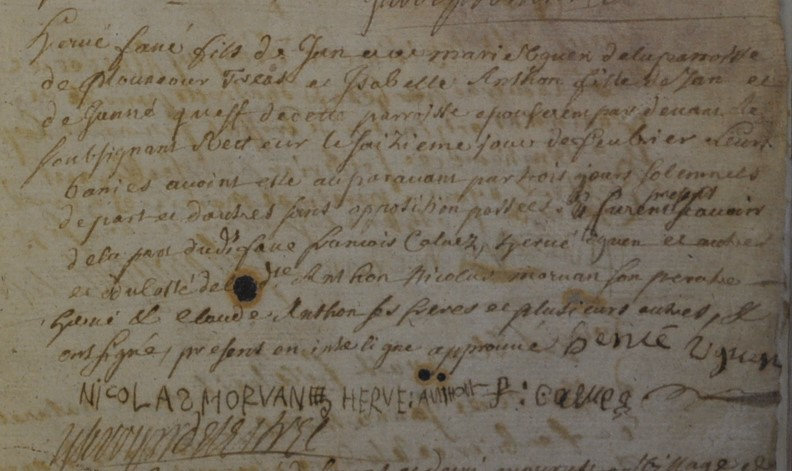 Hervé favé fils de Jan et de marie Uguen de la parroisse
de Plouneour Treas et Isabelle Anthon fille de Jan et
de Janné queff de cette parroisse epouserent par devant le
soubsignant Recteur le saizieme jour de feubrier Leurs
banies avoint esté auparavant par trois jours solemnels
de part et d'autres sans opposition possée. Y furent present scavoir
de la part dudit fave francois Calvez, hervé Uguen et autres
et du costé de la dte Anthon Nicolas morvan son peratre
hervé & claude Anthon ses freres et plusieurs autres, &
ont signé, present en inteligne approuvé hervé Uguen
NICOLAS MORVAN HERVE: Anthon f: Calvez